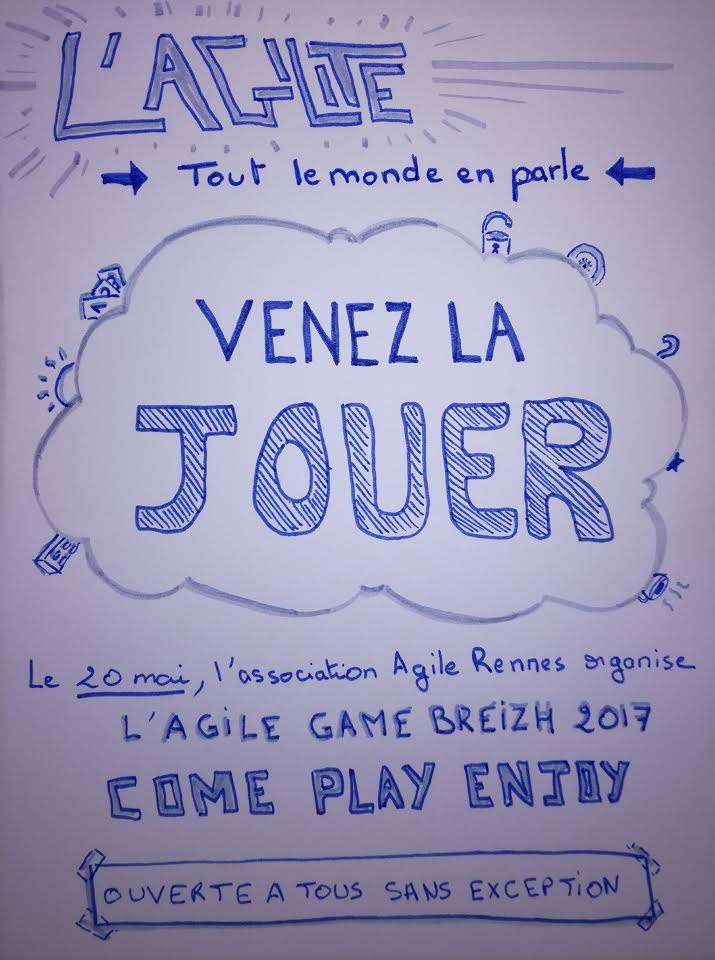 L'AGILITE
Tout le monde en parle
VENEZ LA
JOUER
Le 20 mai, l'association Agile Rennes organise
L'AGiLE GAME BREiZH 2017
COME PLAY ENJOY
OUVERTE A TOUS SANS EXCEPTiON